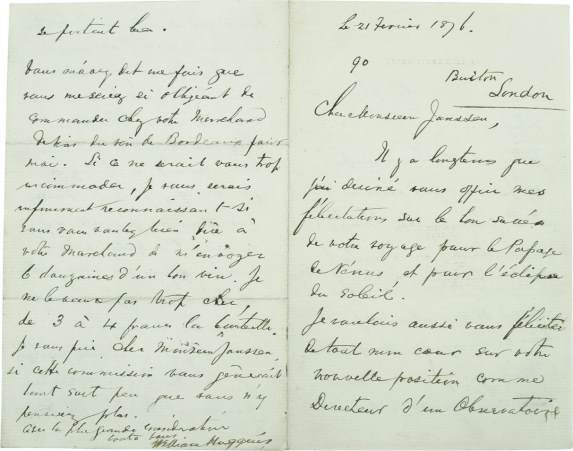 Le 21 Fevrier 1876.
90
Buston
London
Cher Monsieur Janssen,
Il y a longtems que
j'ai desiré vous offrir mes
félicitations sur le bon succés
de votre voyage pour le Passage
de Vénus et pour l'éclipse
du Soleil.
Je voulais aussi vous féliciter
de tout mon cœur sur votre
nouvelle position comme
Directeur d'un Observatoire
se portent bien.
Vous m'avez dit une fois que
vous me seriez si obligeant de
commander chez votre Marchand
de vin du vin de Bordeaux pour
moi. Si ce ne serait vous trop
incommoder, je vous serais
infiniment reconnaissant si
vous vous voulez bien dire à
votre Marchand de m'envoyer
6 douzaines d'un bon vin. Je
ne le veux pas trop cher,
de 3 à 4 francs la bouteille.
Je vous prie Cher Monsieur Janssen,
si cette commission vous gênerait
tout soit peu que vous n'y
pensiez plus.
Avec la plus grande considération
toute vous
William Huggins